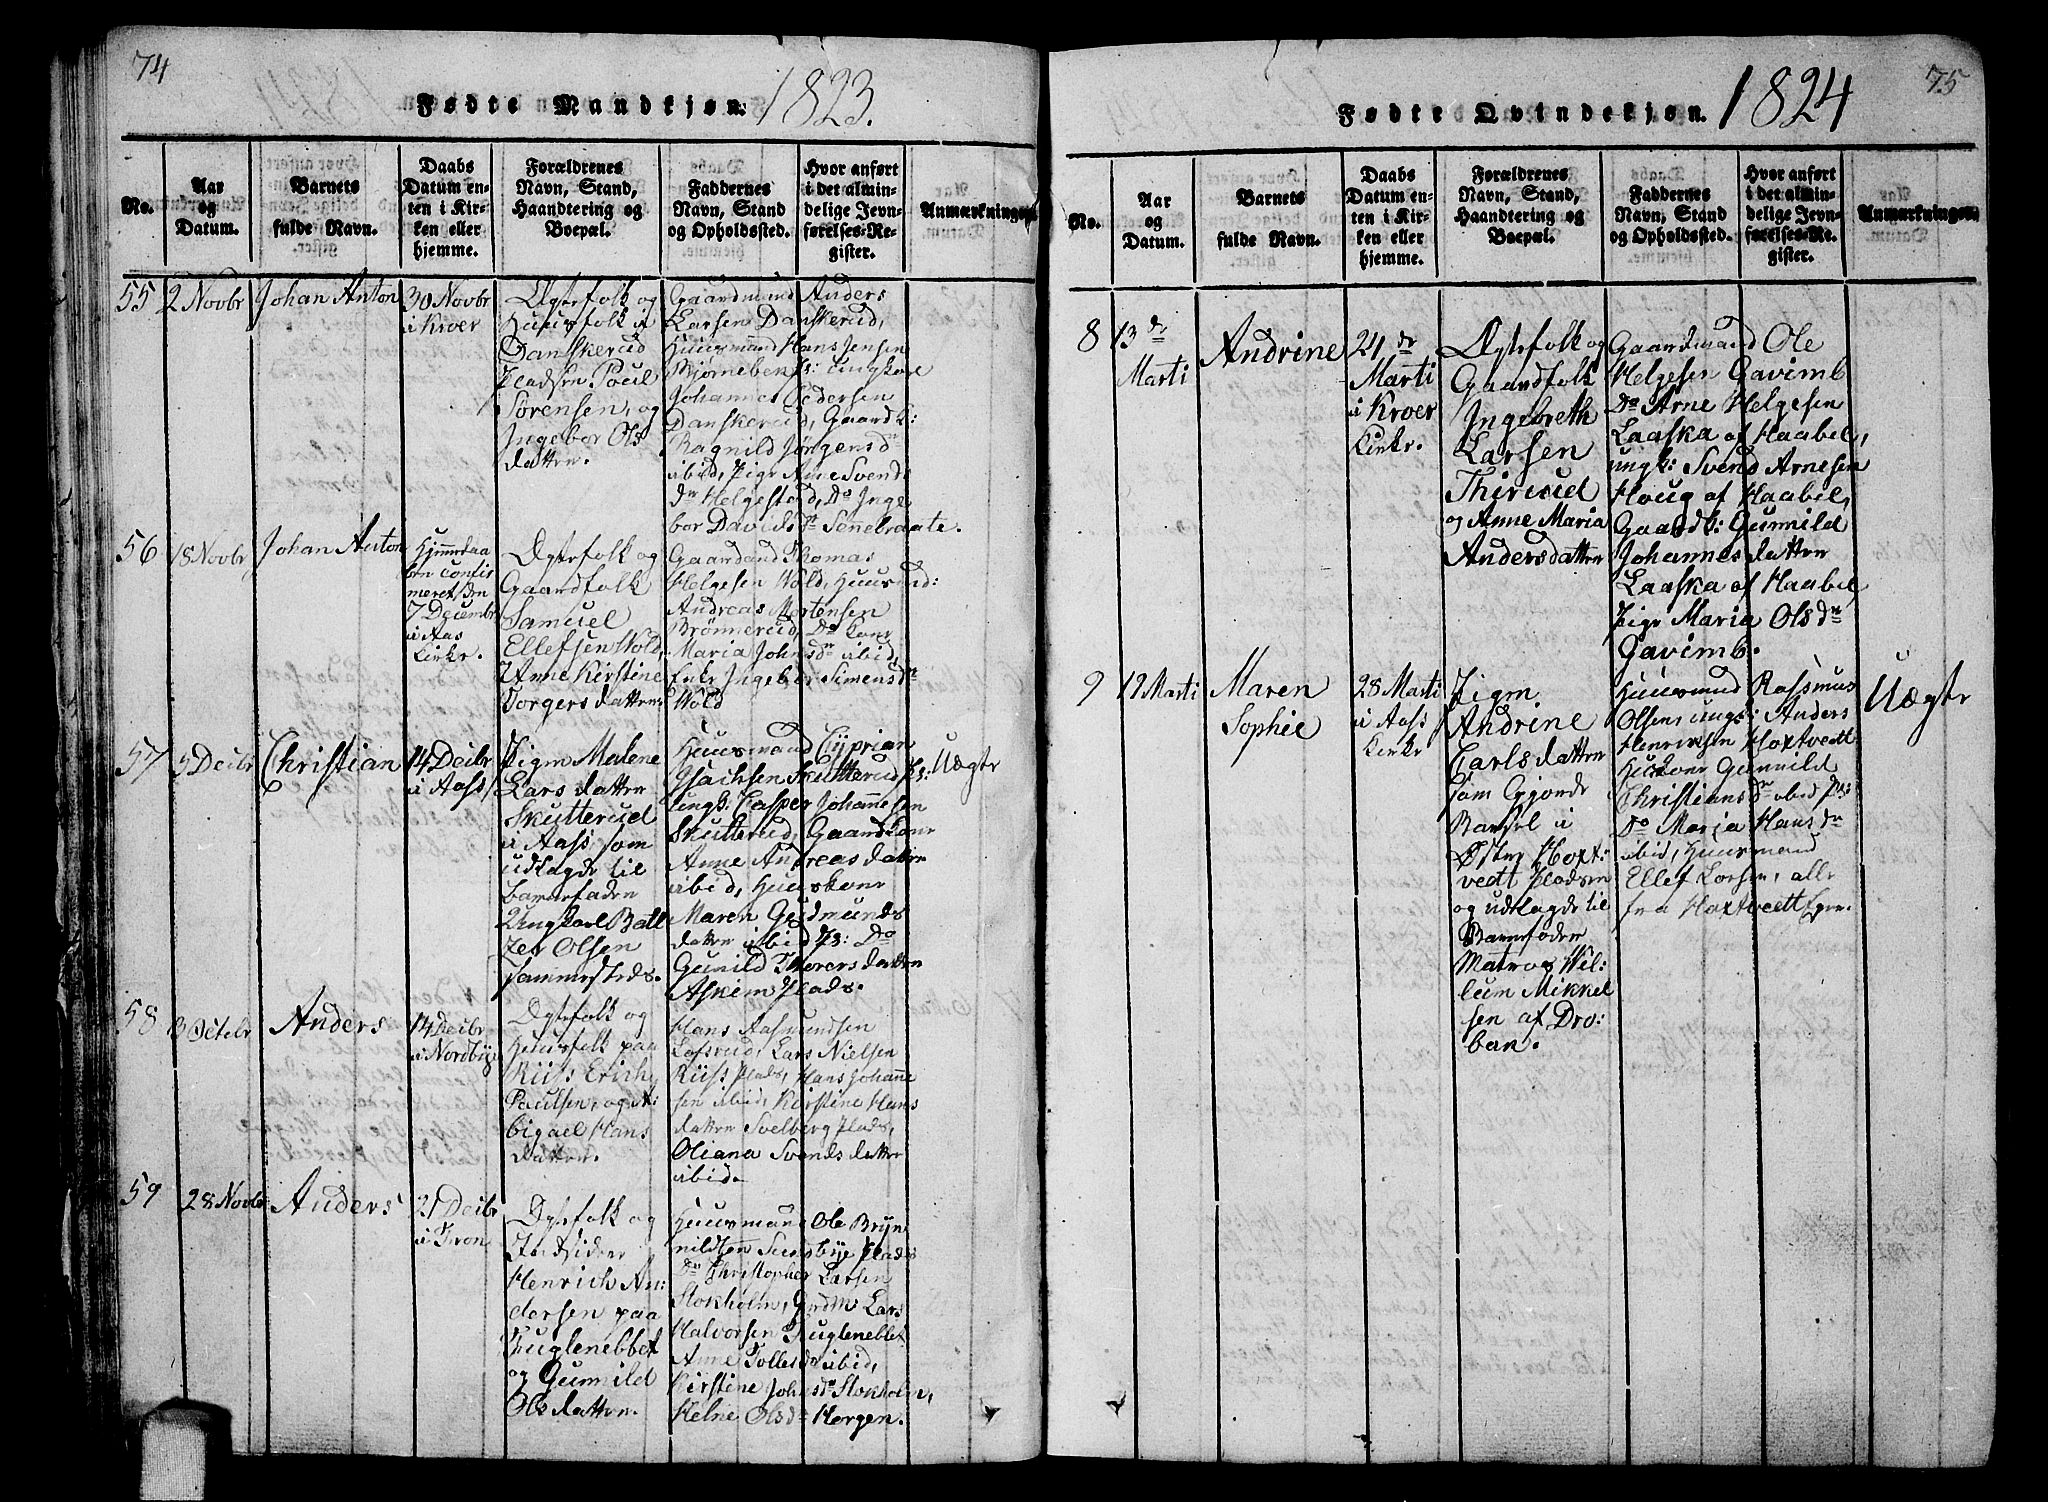 74
Fødte Mandkjøn. 1823.
No.
Aar
og
Datum.
Barnets
fulde Navn.
Daabs
Datum en-
ten i Kir-
ken eller
hjemme.
Forældrenes
Navn, Stand,
Haandtering og
Boepæl.
Faddernes
Navn, Stand
og Opholdssted.
Hvor anført
i det almin-
delige Jevn-
førelses-Re-
gister.
Anmærkninger.
55
2 Novbr
Johan Anton
30 Novbr
i Kroer
Ægtefolk og
Huusfolk i
Danskerud
Pladsen Poul
Sørensen, og
Ingebor Ols
datter.
Gaardmand Anders
Larsen Danskerud,
Huusmand Hans Jensen
Bjørnebek Ps: ungkarl
Johannes Pedersen
Danskerud, Gaardk:
Ragnild Jørgensdr
ibid, Pige Anne Svends
dr Helgestad, Do Inge
bor Davidsdr Senebraate.
56
18 Novbr
Johan Anton
Hjemmedaa
ben confir
meret den
7 Decembr
i Aas
Kirke.
Ægtefolk og
Gaardfolk
Samuel
Ellefsen Wold,
Anne Kirstine
Torgersdatter
Gaardmand Thomas
Helgesen Wold, Huusmd:
Andreas Mortensen
Brønnerud, Do Kone
Maria Johnsdr ibid,
Enke Ingebor Simensdr
Wold
57
5 Decbr
Christian
14 Decbr
i Aass
Pigen Malene
Larsdatter
Skutterud
i Aass som
udlagde til
barnefader
Ungkarl Balt
zer Olsen
sammesteds.
Huusmand Cyprian
Isachsen Skutterud Ps:
ungk: Casper Johannesen
Skutterud, Gaardkone
Anne Andreasdatter
ibid, Huuskone
Maren Gudmunds
datter ibid Ps: Do
Gunild Thorersdatter
Askim Plads.
Uægte
58
3 Octobr
Anders
14 Decbr
i Nordbye
Ægtefolk og
Huusfolk paa
Riiss Erich
Paulsen, og A:
bigael Hans
datter.
Hans Aasmundsen
Lofsrud, Lars Nielsen
Riiss Plads, Hans Johanne
sen ibid, Kirstine Hans
datter Svelberg Plads,
Oliana Svendsdatter
ibid.
59
28 Novbr
Anders
21 Decbr
i Fron
Ægtefolk og
Indsidder
Henrich An:
dersen paa
Kuglenebbet
og Gunnild
Olsdatter.
Huusmand Ole Bryn
nildsen Sundbye Plads
Do Christopher Larsen
Stokholm, Grdm Lars
Halvorsen Kuglenebbet
Anne Tollesdr ibid,
Kirstine Johnsdr Stokholm,
Helne Olsdr Horgen.
75
Fødte Qvindekjøn. 1824
No.
Aar
og
Datum.
Barnets
fulde Navn.
Daabs
Datum en-
ten i Kir-
ken eller
hjemme.
Forældrenes
Navn, Stand,
Haandtering og
Boepæl.
Faddernes
Navn, Stand
og Opholdssted.
Hvor anført
i det almin-
delige Jevn-
førelses-Re-
gister.
Anmærkninger.
8
13de
Marti
Andrine
21de
Marti
i Kroer
Kirke.
Ægtefolk og
Gaardfolk
Ingebreth
Larsen
Thirud
og Anne Maria
Andersdatter
Gaardmand Ole
Helgesen Gavimb
Do Arne Helgesen
Laaska af Haabel,
ungk: Svend Arnesen
Houg af Haabel,
Gaardk: Gunnild
Johannesdatter
Laaska af Haabel,
Pige Maria Olsdr
Gavimb.
9
19 Marti
Maren
Sophie
28 Marti
i Aass
Kirke
Pigen
Andrine
Carlsdatter
som gjorde
Barsel i
Øster Hoxt:
vedt Pladsen
og udlagde til
Barnefader
Matros Wil:
lum Mikkel
sen af Drø:
bak.
Huusmand Rassmus
Olsen, ungk: Anders
Henriksen Hoxtvedt
Huuskone Gunnild
Christiansdr ibid Ps:
Do Marja Hansdr
ibid, Huusmand
Ellef Larsen, alle
fra Hoxtvedt Eyer.
Uægte